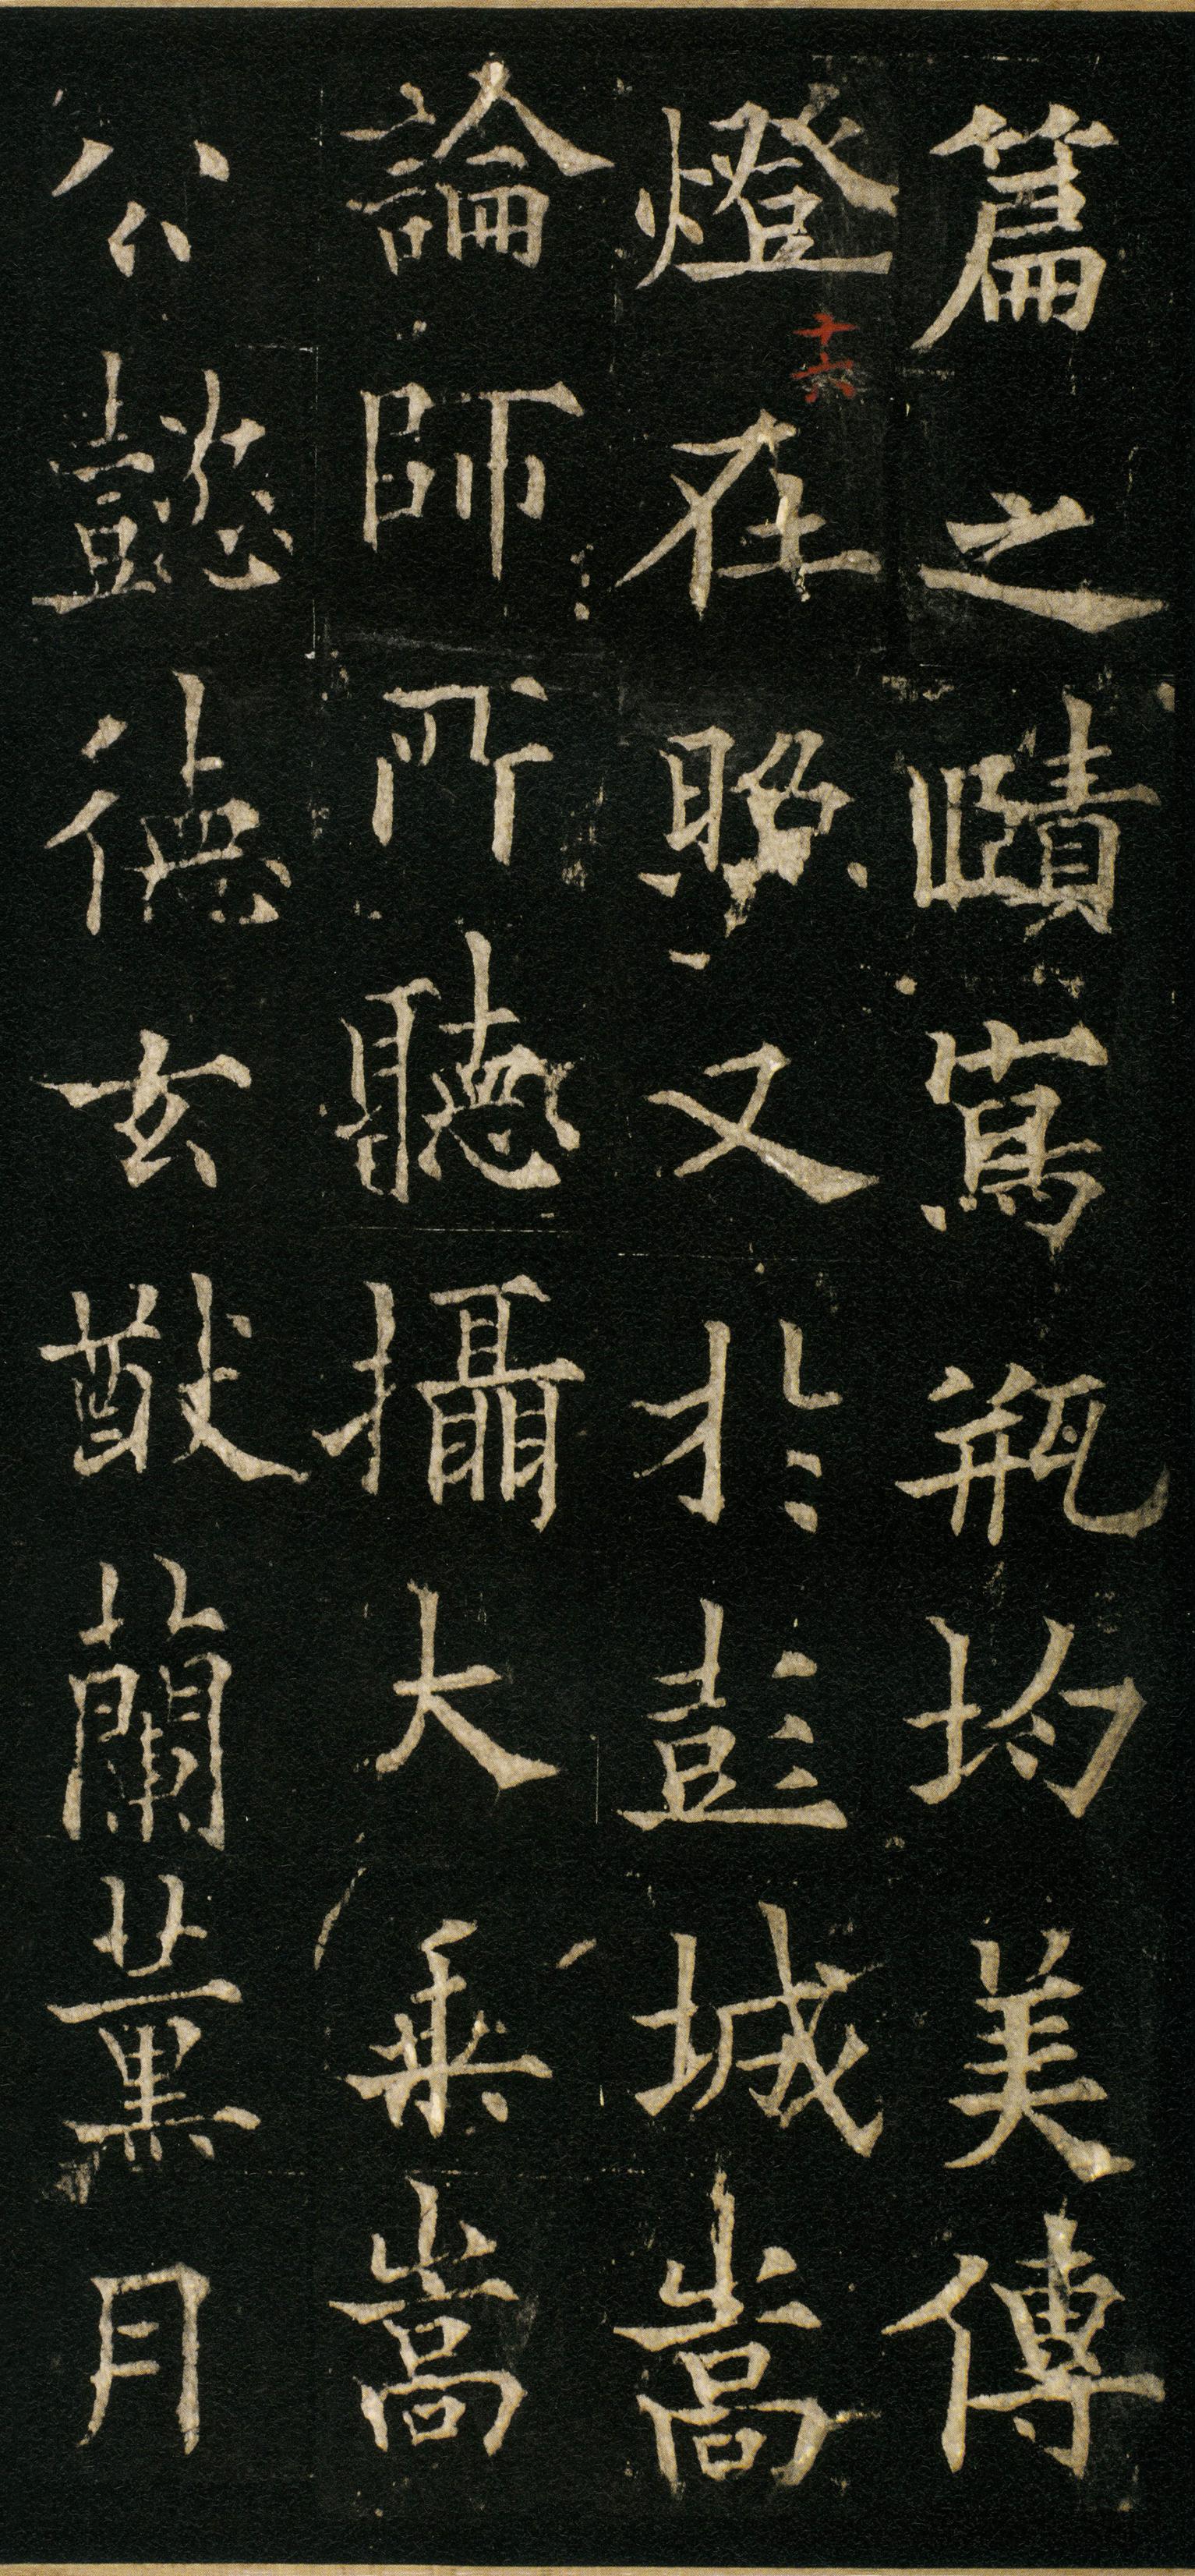 篇之賾寫瓶均美傳
燈在照又於彭城嵩
十六
論師所聽攝大乘嵩
公懿德玄猷蘭薰月